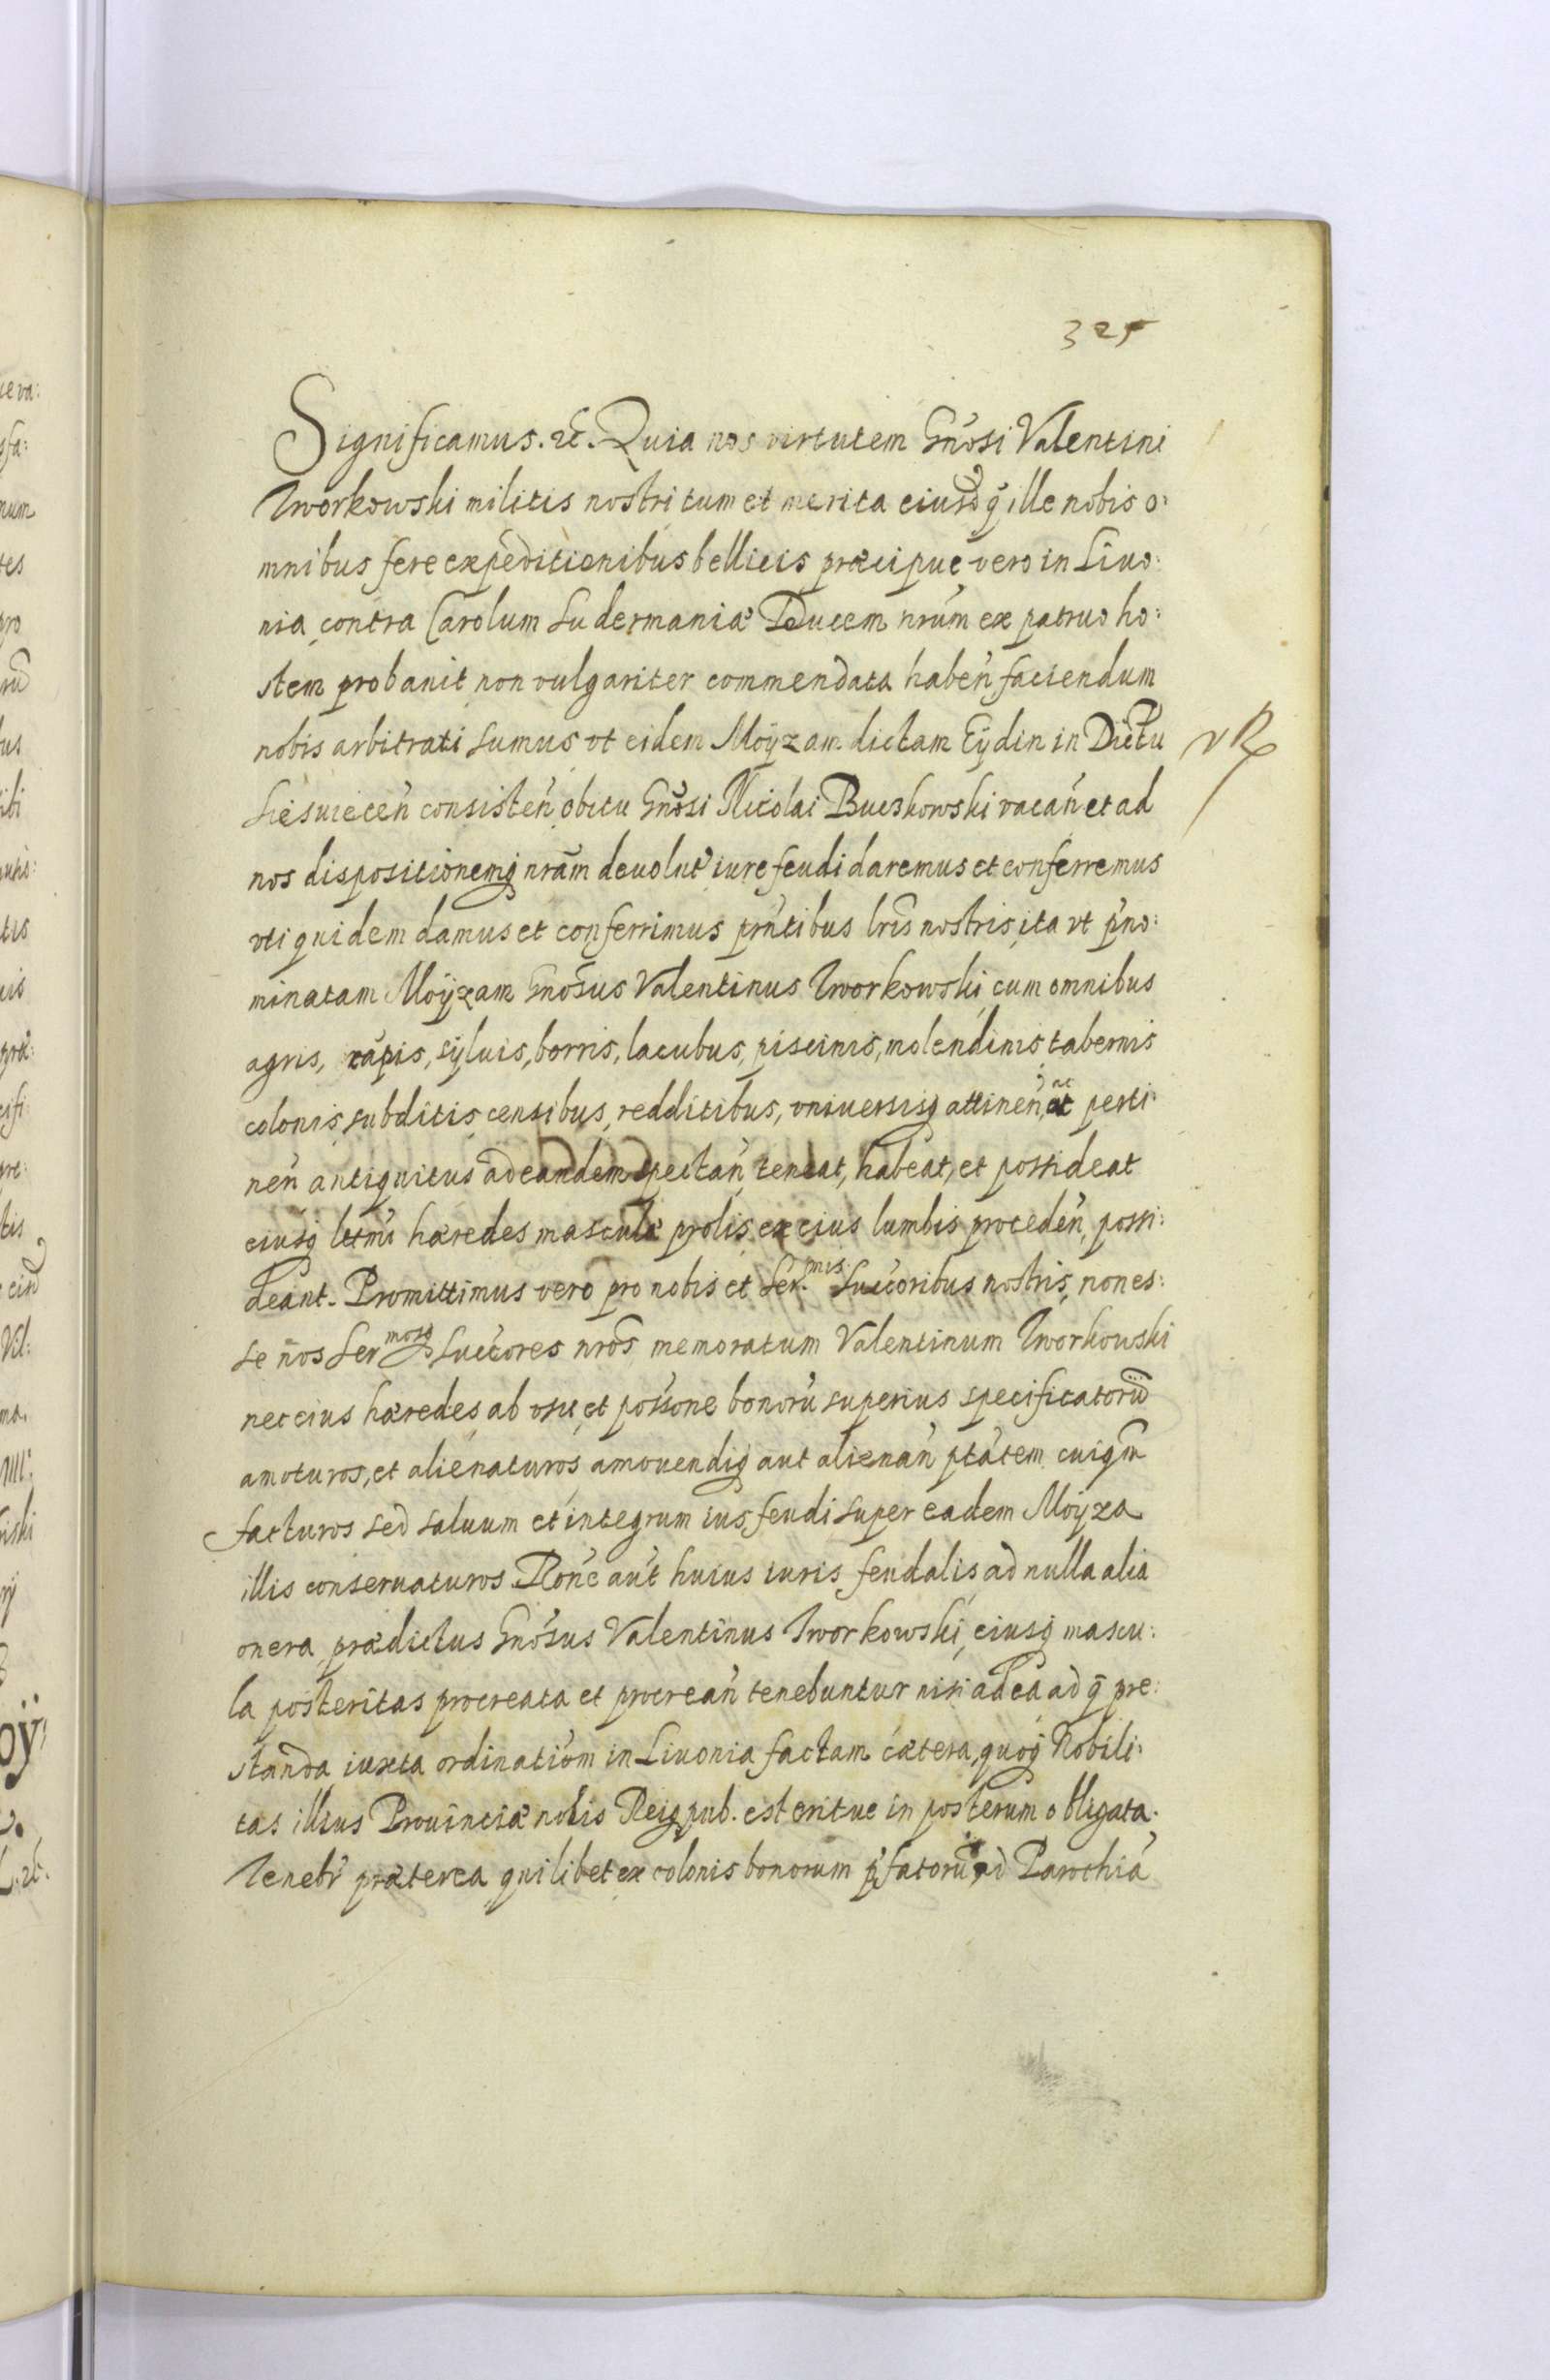 325
Significamus. etc. Quia nos virtutem Gnosi Valentini
Tworkowski militis nostri tum et merita eiusd q̃ ille nobis o:
mnibus fere expeditionibus bellicis præcipue vero in Liuo:
nia contra Carolum Sudermaniæ Ducem nrum ex patruo ho:
stem probauit non vulgariter commendata haben̄ faciendum
nobis arbitrati sumus vt eidem Moÿzam dictam Eÿdin in Dictu
vR
consisten̄ obitu Gnosi Nicolai Buczkowski vacan̄ et ad
nos dispositionemq̢ nram deuolut iure feudi daremus et conferremus
vti quidem damus et conferrimus pn̄tibus lris nostris, ita vt p̄no:
minatam Moÿzam Gnosus Valentinus Tworkowski, cum omnibus
agris, cāpis, sÿluis, borris, lacubus, piscinis, molendinis tabernis
colonis, subditis censibus, redditibus, vniuersisq̢ attinen̄, ac perti:
nen̄ antiquitus ad eandem spectan̄ teneat, habeat, et possideat
eiusq̢ lttmi hæredes masculæ prolis ex eius lumbis proceden̄, possi:
deant. Promittimus vero pro nobis et Ser.mis Succoribus nostris, non es:
se nos Sermosq̢ Succores nros memoratum Valentinum Tworkowski
nec eius hæredes ab vsu et possone bonorū superius specificatorū
amoturos, et alienaturos, amouendiq̢ aut alienan̄ ptatem cuiq̃m
facturos sed saluum et integrum ius feudi super eadem Moÿza
illis conseruaturos. Rone aut huius iuris feudalis ad nulla alia
onera prædictus Gnosus Valentinus Tworkowski, eiusq̢ mascu:
la posteritas procreata et procrean̄ tenebuntur nisi ad ea ad q̃ pre:
standa iuxta ordinatiom in Liuonia factam cætera quoq̢ Nobili:
tas illius Prouinciæ nobis Reiq̢ pub. est eritue in posterum obligata.
Tenebr præterea quilibet ex colonis bonorum p̄fatorū ad Parochiā